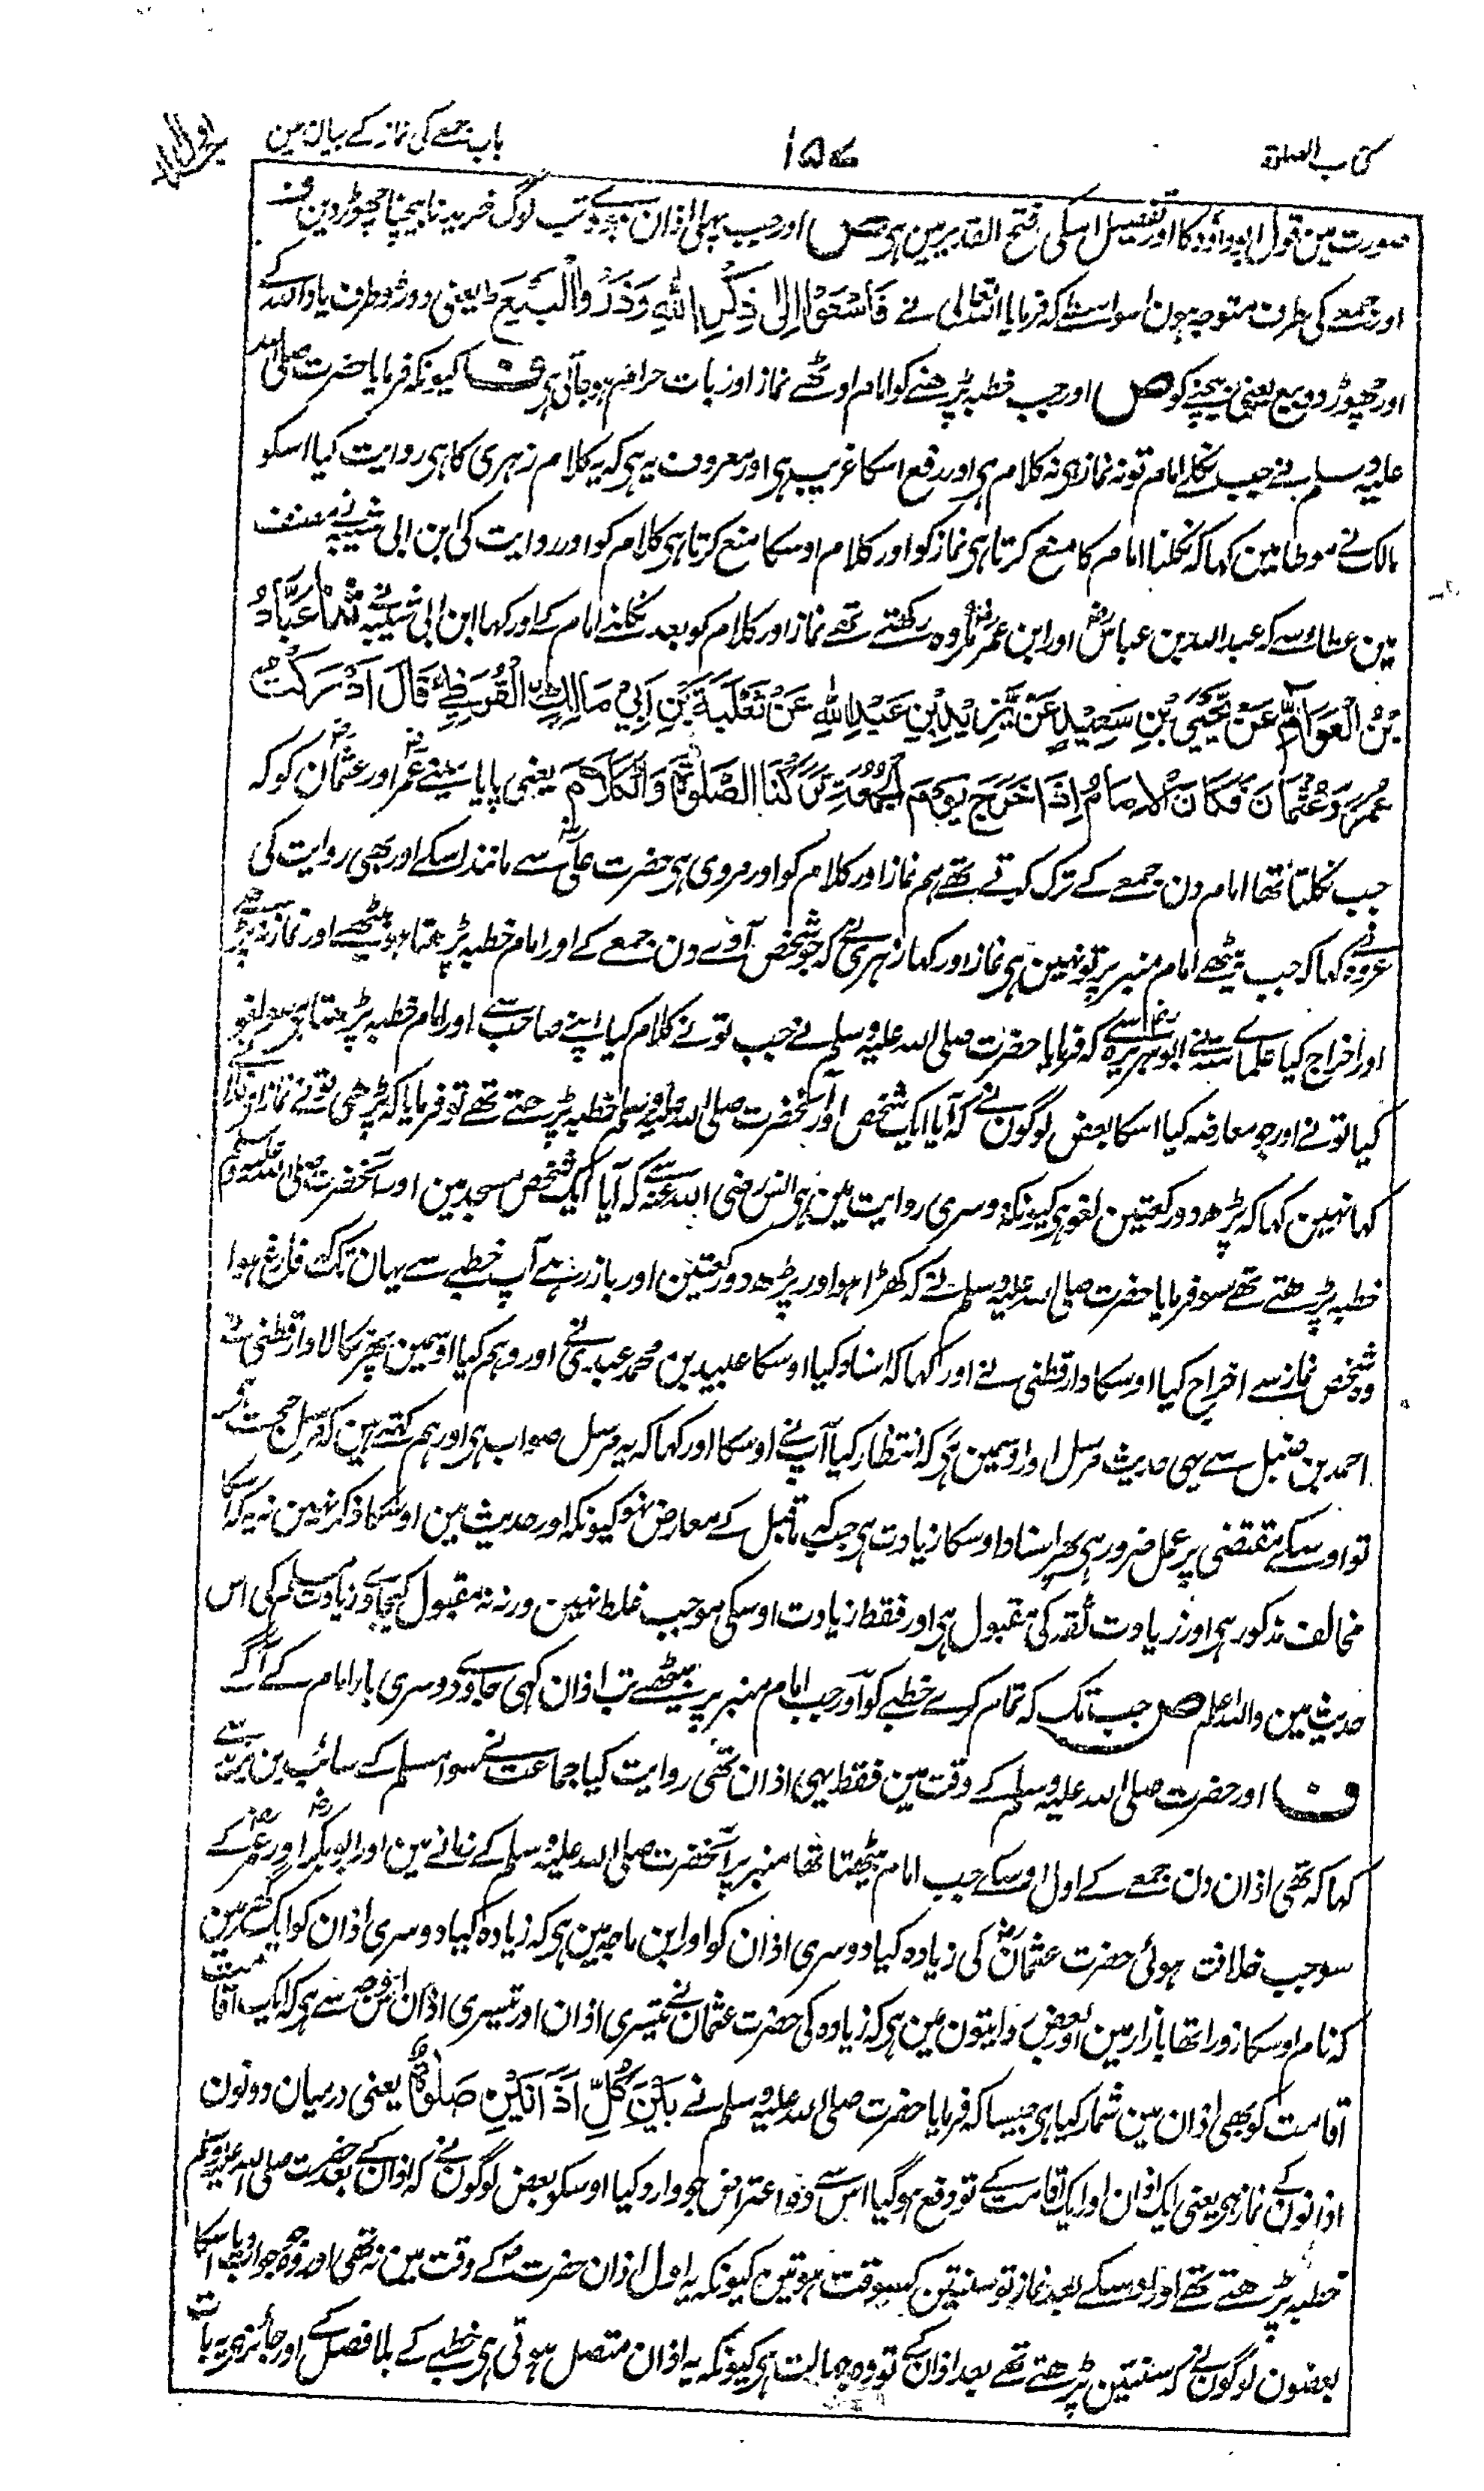 کتاب الصلوۃ ۱۵۷ باب جمعے کی نماز کے بیان مین
صورت مین قول ابو داؤد کا اور تفصیل اسکی فتح القدیر مین ہی ص اور جب پہلی اذان ہووے تب لوگ خریدنا بیچنا چھوڑ دین ف
اور جمعے کی طرف متوجہ ہون اسواسطے کہ فرمایا اللہ تعالی نے فَاسْعَوْا اِلىٰ ذِكْرِ اللّٰهِ وَذَرُوا الْبَيْعَ ط یعنی دوڑو طرف یاد اللہ کے
اور چھوڑ دو بیع یعنی بیچنے کو ص اور جب خطبہ پڑھنے کو امام اوٹھے نماز اور بات حرام ہو جاتی ہی ف کیونکہ فرمایا حضرت صلی اللہ
علیہ وسلم نے جب نکلے امام تو نہ نماز ہی نہ کلام ہی اور رفع اسکا غریب ہی اور معروف یہ ہی کہ یہ کلام زہری کا ہی روایت کیا اسکو
مالک نے موطا مین کہا کہ نکلنا امام کا منع کرتا ہی نماز کو اور کلام اوسکا منع کرتا ہی کلام کو اور روایت کی ابن ابی شیبہ نے مصنف
مین عطا سے کہ عبد اللہ بن عباس رض اور ابن عمر رض مکروہ رکھتے تھے نماز اور کلام کو بعد نکلنے امام کے اور کہا ابن ابی شیبہ نے ثَنَا عَبَّادُ
بْنُ الْعَوَامِّ عَنْ يَحْيَى بْنِ سَعِيْدٍ عَنْ يَّزِيْدِ بْنِ عَبْدِ اللّٰهِ عَنْ ثَعْلَبَةَ بْنِ اَبِيْ مَالِكِ الْقُرَظِيِّ قَالَ اَدْرَكْتُ
عُمَرَ وَعُثْمَانَ فَكَانَ الْاِمَامُ اِذَا خَرَجَ يَوْمَ الْجُمُعَةِ تَرَكْنَا الصَّلٰوةَ وَالْكَلَامَ یعنی پایا مینے عمر رض اور عثمان رض کو کہ
جب نکلتا تھا امام دن جمعے کے ترک کرتے تھے ہم نماز اور کلام کو اور مروی ہی حضرت علی رض سے مانند اسکے اور بھی روایت کی
عروہ نے کہا کہ جب بیٹھے امام منبر پر تو نہین ہی نماز اور کہا زہری نے کہ جو شخص آوے دن جمعے کے اور امام خطبہ پڑھتا ہو بیٹھے اور نماز نہ پڑھے
اور اخراج کیا علمائے ستہ نے ابو ہریرہ رض سے کہ فرمایا حضرت صلی اللہ علیہ وسلم نے جب تو نے کلام کیا اپنے صاحب سے اور امام خطبہ پڑھتا ہی سو لغو
کیا تو نے اور جو معارضہ کیا اسکا بعض لوگون نے کہ آیا ایک شخص اور آنحضرت صلی اللہ علیہ وسلم خطبہ پڑھتے تھے تو فرمایا کہ پڑھی تو نے نماز
کہا نہین کہا کہ پڑھ دو رکعتین لغو ہی کیونکہ دوسری روایت مین ہی انس رضی اللہ عنہ سے کہ آیا ایک شخص مسجد مین اور آنحضرت صلی اللہ علیہ وسلم
خطبہ پڑھتے تھے سو فرمایا حضرت صلی اللہ علیہ وسلم نے کہ کھڑا ہو اور پڑھ دو رکعتین اور باز رہے آپ خطبے سے یہان تک فارغ ہوا
وہ شخص نماز سے اخراج کیا اوسکا دارقطنی نے اور کہا کہ اسناد کیا اوسکا عبید بن محمد عبدی نے اور وہم کیا اوسمین پھر نکالا دارقطنی نے
احمد بن حنبل سے یہی حدیث مرسل اور اوسمین ہی کہ انتظار کیا آپ نے اوسکا اور کہا کہ یہ مرسل صواب ہی اور ہم کہتے ہین کہ مرسل حجت ہی
تو اوسکے مقتضی پر عمل ضرور ہی پھر اسناد اوسکا زیادت ہی جب کہ ماقبل کے معارض نہو کیونکہ اور حدیث مین اوسکا ذکر نہین نہ یہ کہ اسکا
مخالف مذکور ہی اور زیادت ثقہ کی مقبول ہی اور فقط زیادت اوسکی موجب غلط نہین ورنہ نہ مقبول کیجاوے زیادت مسلم کی اس
حدیث مین واللہ اعلم ص جب تک کہ تمام کرے خطبے کو اور جب امام منبر پر بیٹھے تب اذان کہی جاوے دوسری بار امام کے آگے
ف اور حضرت صلی اللہ علیہ وسلم کے وقت مین فقط یہی اذان تھی روایت کیا جماعت نے سوا مسلم کے سائب بن یزید سے
کہا کہ تھی اذان دن جمعے کے اول اوسکے جب امام بیٹھتا تھا منبر پر آنحضرت صلی اللہ علیہ وسلم کے زمانے مین اور ابو بکر رض اور عمر رض کے
سو جب خلافت ہوئی حضرت عثمان رض کی زیادہ کیا دوسری اذان کو اور ابن ماجہ مین ہی کہ زیادہ کیا دوسری اذان کو ایک گھر مین
کہ نام اوسکا زورا تھا بازار مین اور بعض روایتون مین ہی کہ زیادہ کی حضرت عثمان نے تیسری اذان اور تیسری اذان اس وجہ سے ہی کہ ایک اقامت
اقامت کو بھی اذان مین شمار کیا ہی جیسا کہ فرمایا حضرت صلی اللہ علیہ وسلم نے بَيْنَ كُلِّ اَذَانَيْنِ صَلٰوةٌ یعنی درمیان دونون
اذانون کے نماز ہی یعنی ایک اذان اور ایک اقامت کے تو دفع ہو گیا اس سے وہ اعتراض جو وارد کیا اوسکو بعض لوگون نے کہ اذان کے بعد حضرت صلی اللہ علیہ وسلم
خطبہ پڑھتے تھے اور اوسکے بعد نماز تو سنتین کسوقت ہوتین کیونکہ یہ اول اذان حضرت کے وقت مین نہ تھی اور وہ جو جواب دیا اسکا
بعضون لوگون نے کہ سنتین پڑھتے تھے بعد اذان کے تو وہ جہالت ہی کیونکہ یہ اذان متصل ہوتی ہی خطبے کے بلا فصل کے اور جائز ہی یہ بات